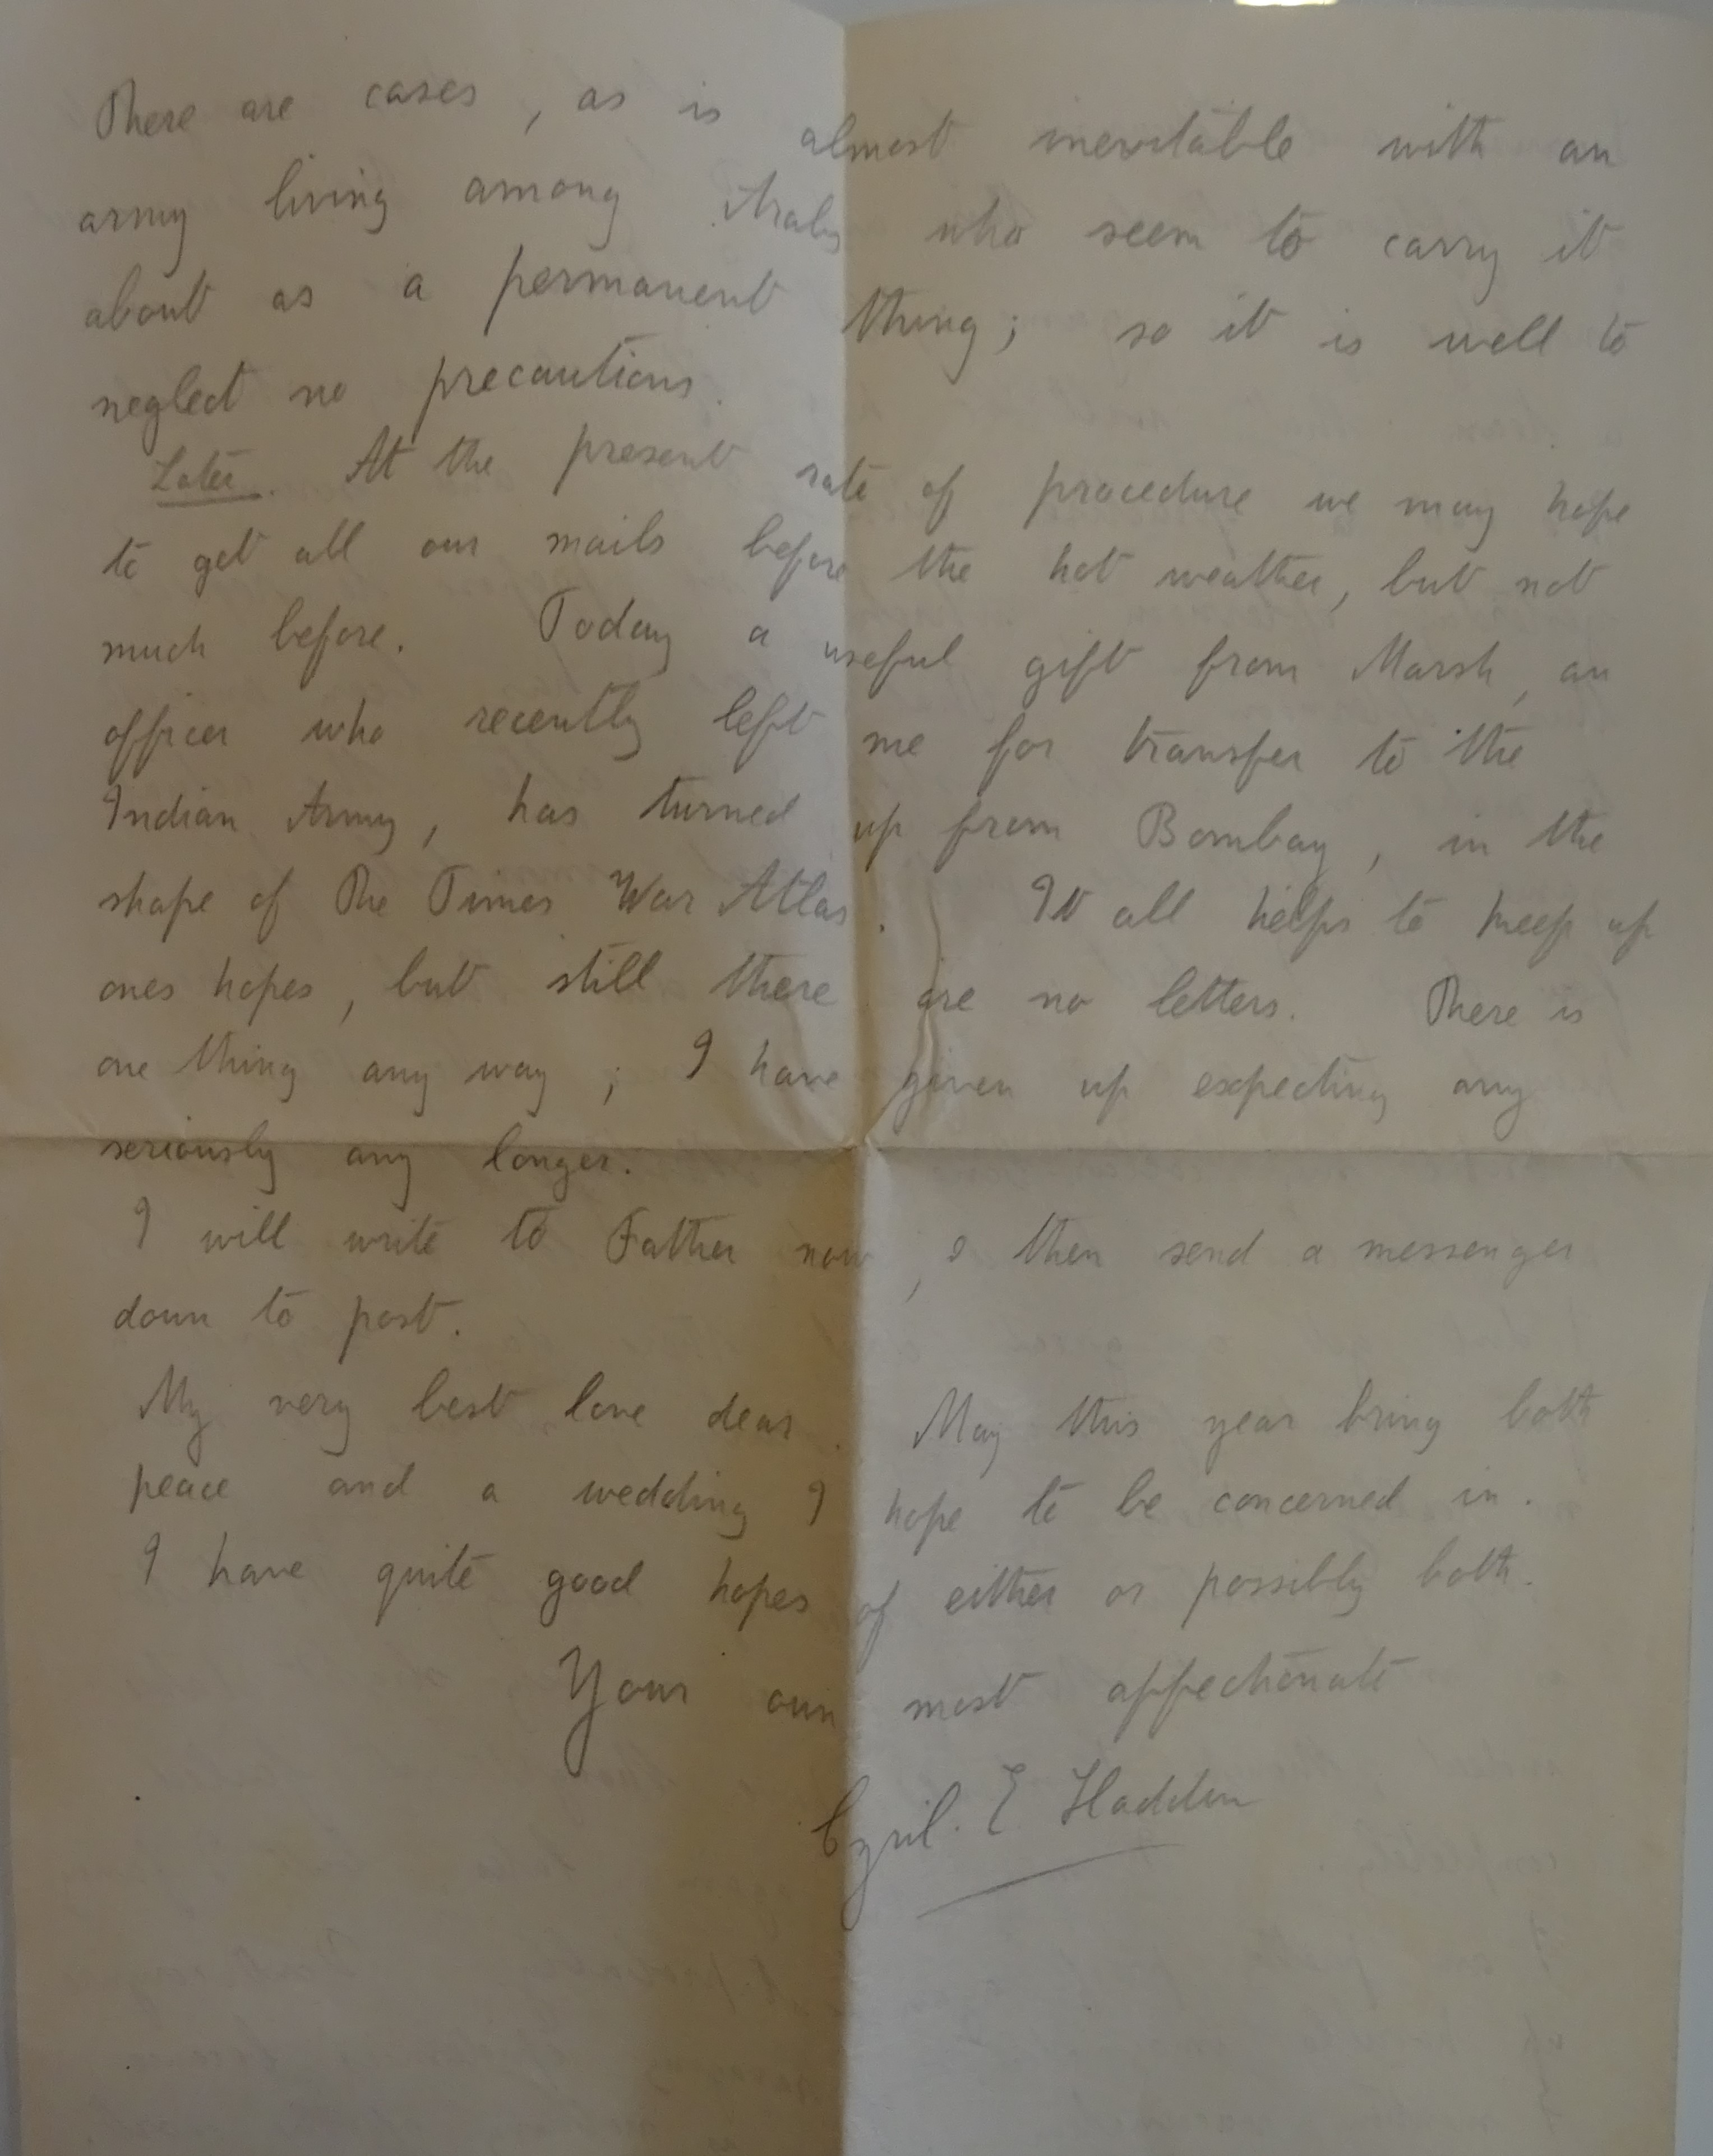 There are cases, as is almost inevitable with an
army living among Arabs who seem to carry it
about as a permanent thing; so it is well to
neglect no precautions.
Later. At the present rate of procedure we may hope
to get all our mails before the hot weather, but not
much before. Today a useful gift from Marsh, an
officer who recently left me for transfer to the
Indian Army, has turned up from Bombay, in the
shape of The Times War Atlas. It all helps to keep up
ones hopes, but still there are no letters. There is
one thing any way; I have given up expecting any
seriously any longer.
I will write to Father now, & then send a messenger
down to post.
My very best love dear. May this year bring both
peace and a wedding I hope to be concerned in.
I have quite good hopes of either or possibly both.
Your own most affectionate
Cyril. E Haddon